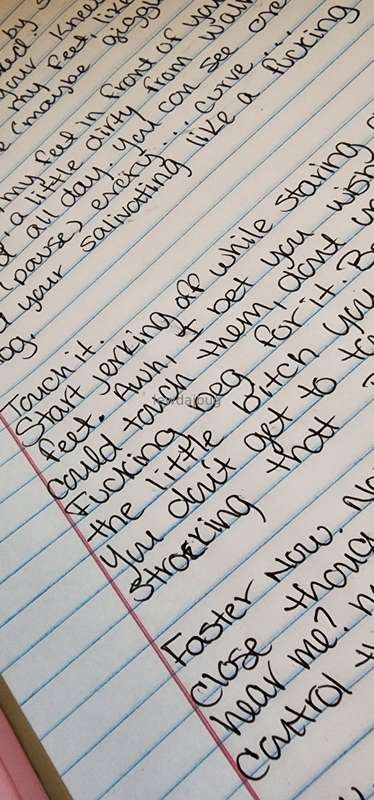 by s
your knee
my feet, like
e (maybe giggl
my feet in front of you
a little dirty from wal
d all day. you can see ere
(pause) every.... curve ...
d your salivating like a fucking
og.
Touch it.
Start jerking off while staring
feet. Awh, I bet you wish
could touch them, don't
Fucking beg for it. B
the little bitch you
You don't get to to
stroking that
Faster Now. No
close thoug
hear me? n
control th
lewdafoug